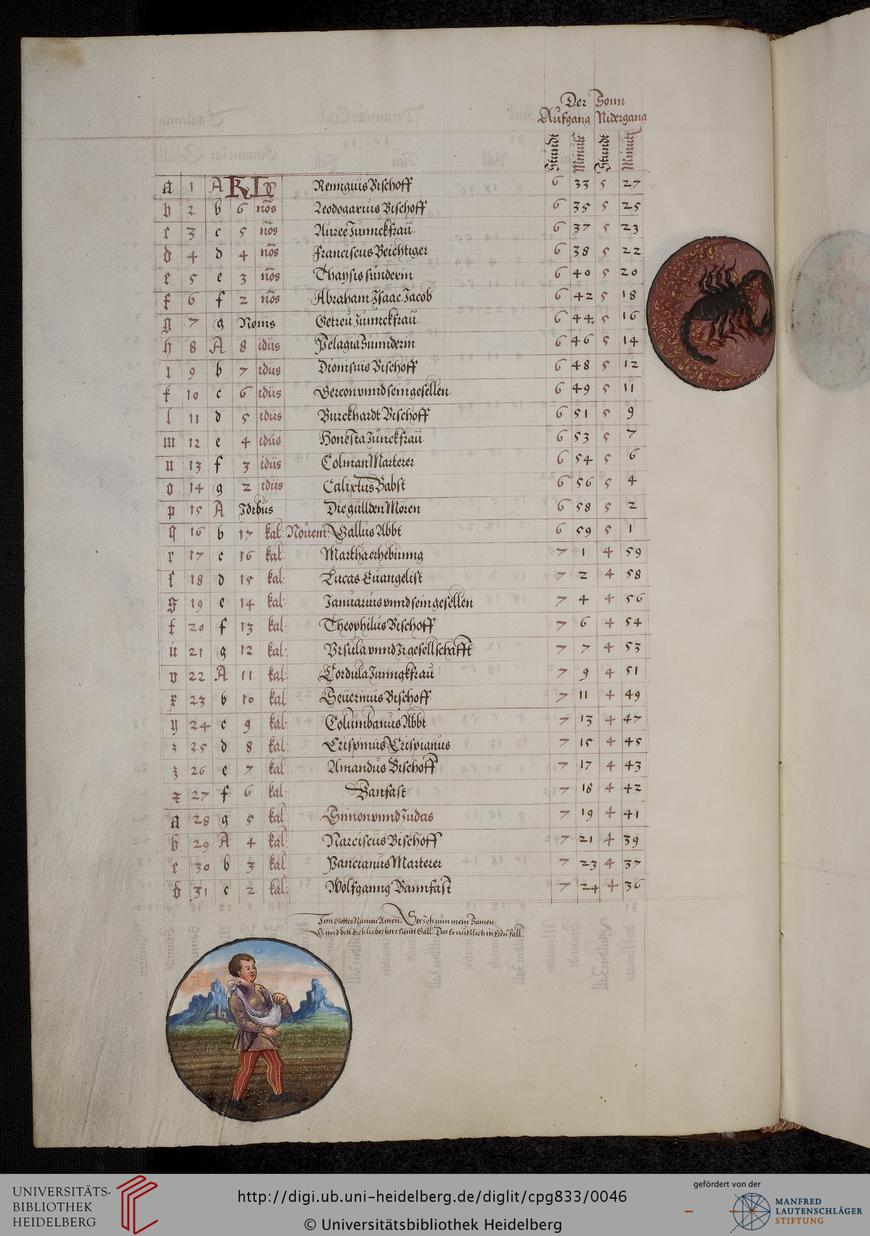 Der Sonn
Aufgang Nidergang
Stundt Minutt Stundt Minutt
a 1 A KL Remigius Bischoff 6 33 5 27
b 2 b 6 nōs Leodogarius Bischoff 6 35 5 25
c 3 c 5 nōs Auree Junnckfrau 6 37 5 23
d 4 d 4 nōs Franciscus Beichtiger 6 38 5 22
e 5 e 3 nōs Thaysis sunderin 6 40 5 20
f 6 f 2 nōs Abraham Isaac Jacob 6 42 5 18
g 7 g Nonis Getreu Junnckfrau 6 44 5 16
h 8 A 8 idus Pelagia Sunnderin 6 46 5 14
i 9 b 7 idus Dionisius Bischoff 6 48 5 12
k 10 c 6 idus Gereon unnd sein gesellen 6 49 5 11
l 11 d 5 idus Burckhardt Bischoff 6 51 5 9
m 12 e 4 idus Honesta Junckfrau 6 53 5 7
n 13 f 3 idus Colman Marterer 6 54 5 6
o 14 g 2 idus Calixtus Babst 6 56 5 4
p 15 A Idibus Die gullden Moren 6 58 5 2
q 16 b 17 kal: Nouem: Gallus Abbt 6 59 5 1
r 17 c 16 kal: Martha erhebunng 7 1 4 59
s 18 d 15 kal: Lucas Euangelist 7 2 4 58
s 19 e 14 kal: Januarius unnd sein gesellen 7 4 4 56
t 20 f 13 kal: Theophilus Bischoff 7 6 4 54
u 21 g 12 kal: Ursula unnd Ir gesellschafft 7 7 4 53
v 22 A 11 kal: Cordula Junngkfrau 7 9 4 51
x 23 b 10 kal Seuerinus Bischoff 7 11 4 49
y 24 c 9 kal: Columbanus Abbt 7 13 4 47
z 25 d 8 kal: Crispinus Crispianus 7 15 4 45
z 26 e 7 kal Amandus Bischoff 7 17 4 43
27 f 6 kal: Banfast 7 18 4 42
a 28 g 5 kal Simon unnd Judas 7 19 4 41
b 29 A 4 kal: Narciscus Bischoff 7 21 4 39
c 30 b 3 kal: Marterer 7 23 4 37
d 31 c 2 kal: Wolfganng Bannfast 7 24 4 36
Inn Gottes Namen Amen. See Ich nun mein Samen
Unnd bitt dich lieber herr sannt Gall: Das er nutzlich in Erdu fall.
UNIVERSITÄTS-
BIBLIOTHEK
HEIDELBERG
http://digi.ub.uni-heidelberg.de/diglit/cpg833/0046
© Universitätsbibliothek Heidelberg
gefördert von der
MANFRED
LAUTENSCHLÄGER
STIFTUNG